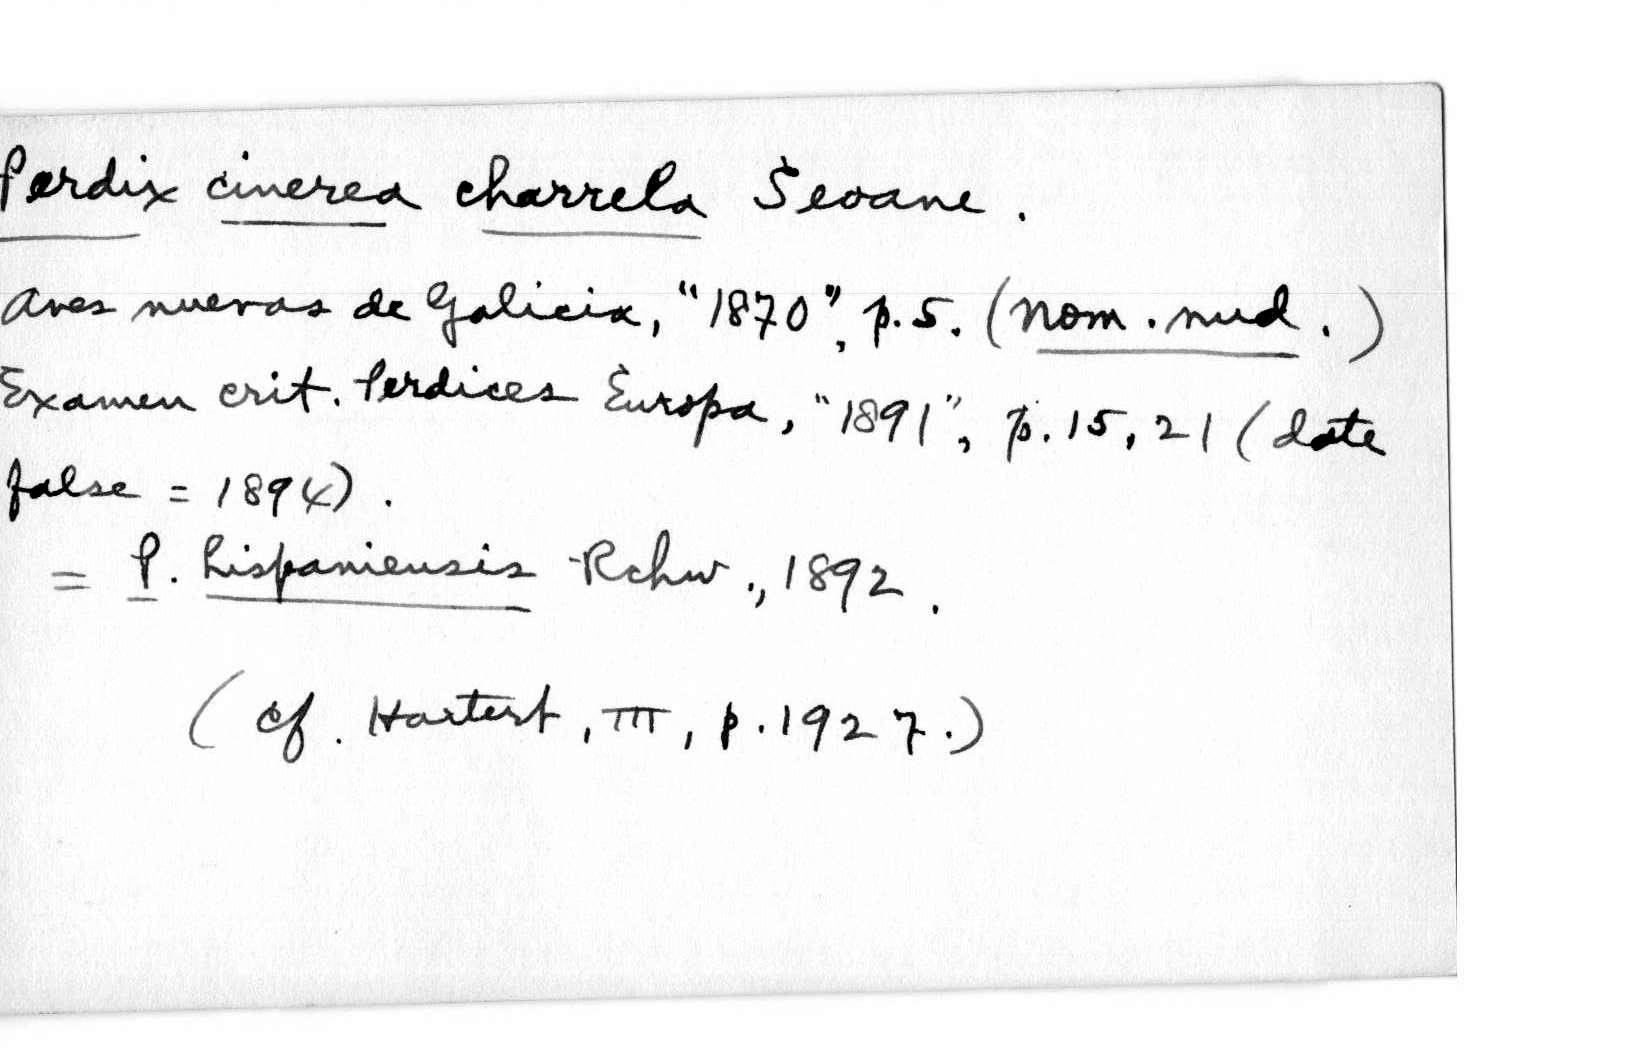 Perdix cinerea charrela Seoane.
Aves nuevas de Galicia, "1870", p.5. (nom. nud.)
Examen crit. Perdices Europa, "1891", p. 15, 21 (date
false = 1894).
= P. hispaniensis Rchw., 1892.
(cf. Hartert, III, p. 1927.)